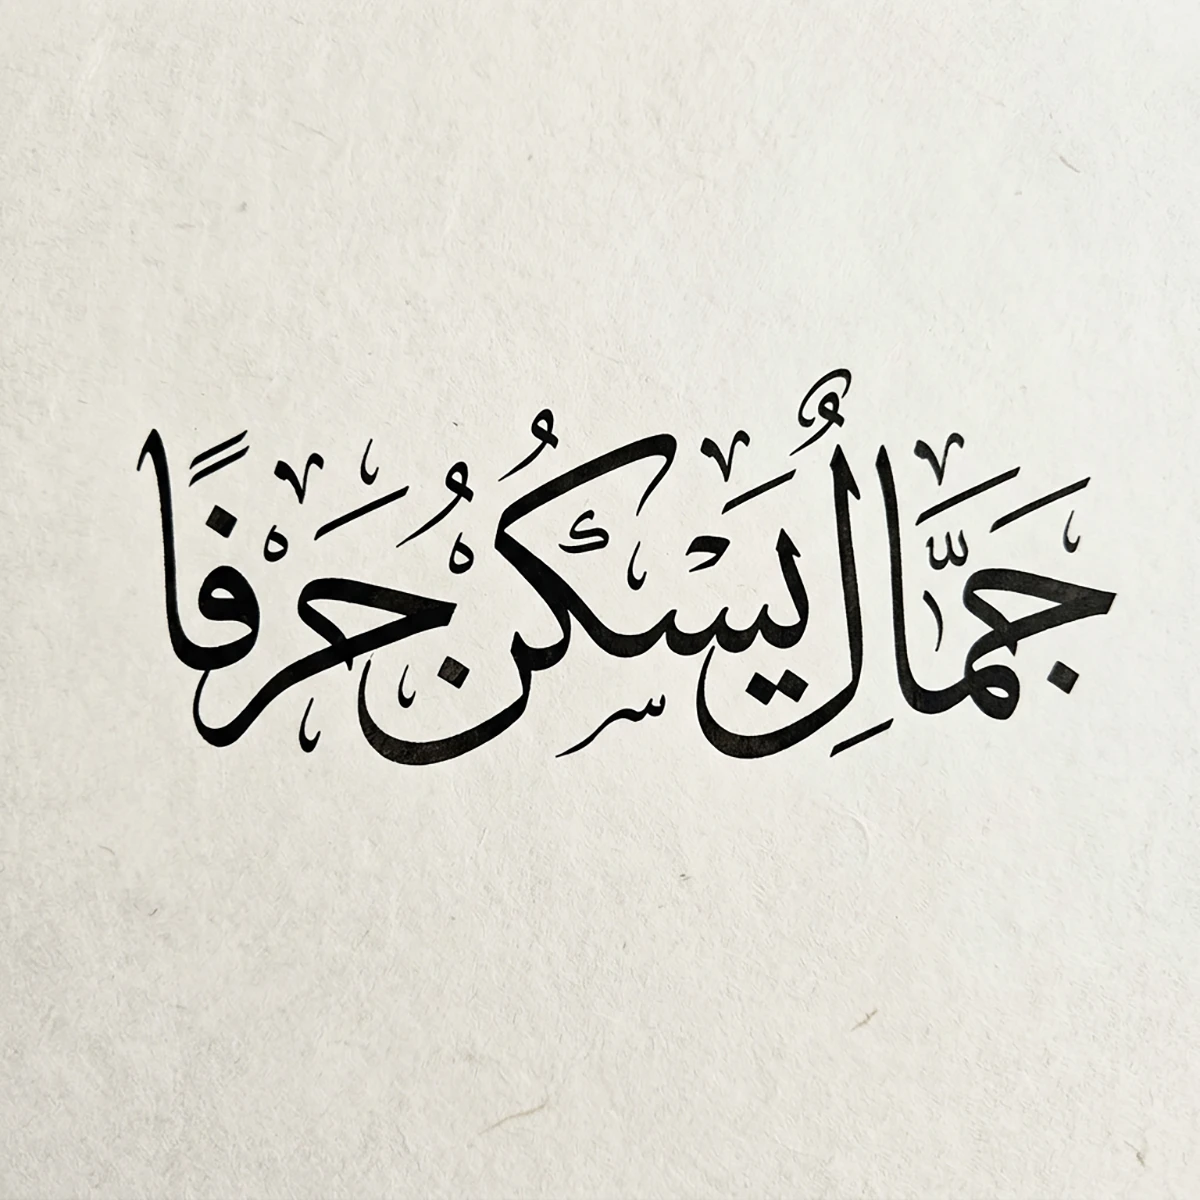 جَمَّالُ يَسْكُنُ حَرْفًا